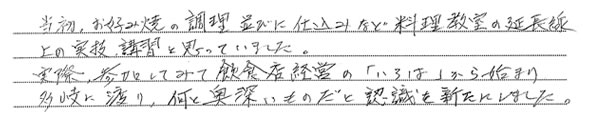 当初、お好み焼の調理並びに仕込みなど料理教室の延長線
上の実技、講習と思っていました。
実際、参加してみて飲食店経営の「いろは」から始まり
多岐に渡り、何と奥深いものだと認識を新たにしました。